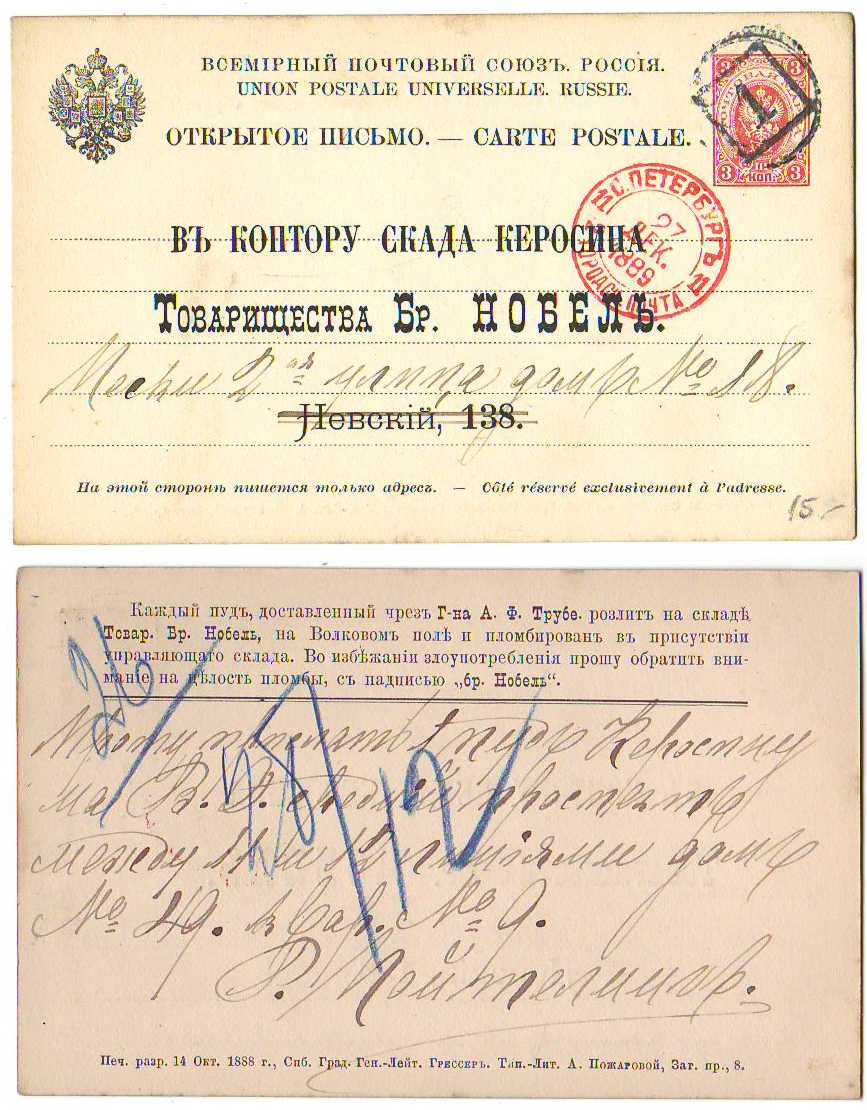 ВСЕМІРНЫЙ ПОЧТОВЫЙ СОЮЗЪ. РОССІЯ.
UNION POSTALE UNIVERSELLE. RUSSIE.
ОТКРЫТОЕ ПИСЬМО. — CARTE POSTALE.
3 3
1
3 КОП. 3
С.ПЕТЕРБУРГЪ
27
ДЕК.
1889
ГОРОДСК. ПОЧТА
ВЪ КОНТОРУ СКАДА КЕРОСИНА
ТОВАРИЩЕСТВА БР. НОБЕЛЬ.
2ая улица домъ № 18.
Невскій, 138.
На этой сторонѣ пишется только адресъ. — Côté réservé exclusivement à l'adresse.
15.-
Каждый пудъ, доставленный чрезъ Г-на А. Ф. Трубе. розлитъ на складѣ
Товар. Бр. Нобель, на Волковомъ полѣ и пломбированъ въ присутствіи
управляющаго склада. Во избѣжаніи злоупотребленія прошу обратить вни-
маніе на цѣлость пломбы, съ надписью „бр. Нобель“.
26
28/12
прислать 1 пудъ Керосину
на В. О. средній проспектъ
между 11 и 12 линіями домъ
№ 49. квар. № 9.
Печ. разр. 14 Окт. 1888 г., Спб. Град. Ген.-Лейт. Грессеръ. Тип.-Лит. А. Пожаровой, Заг. пр., 8.